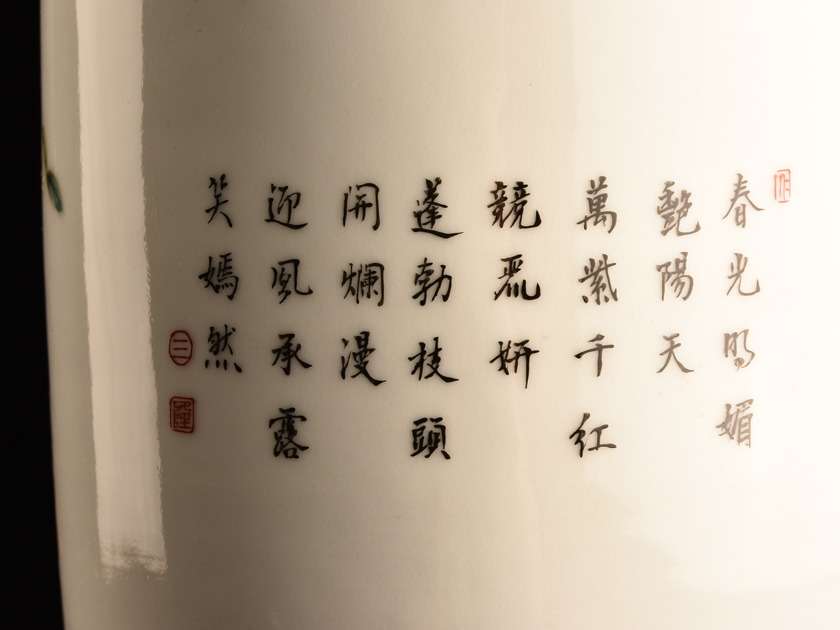 春光明媚
艷陽天
萬紫千紅
競麗妍
蓬勃枝頭
開爛漫
迎風承露
笑嫣然